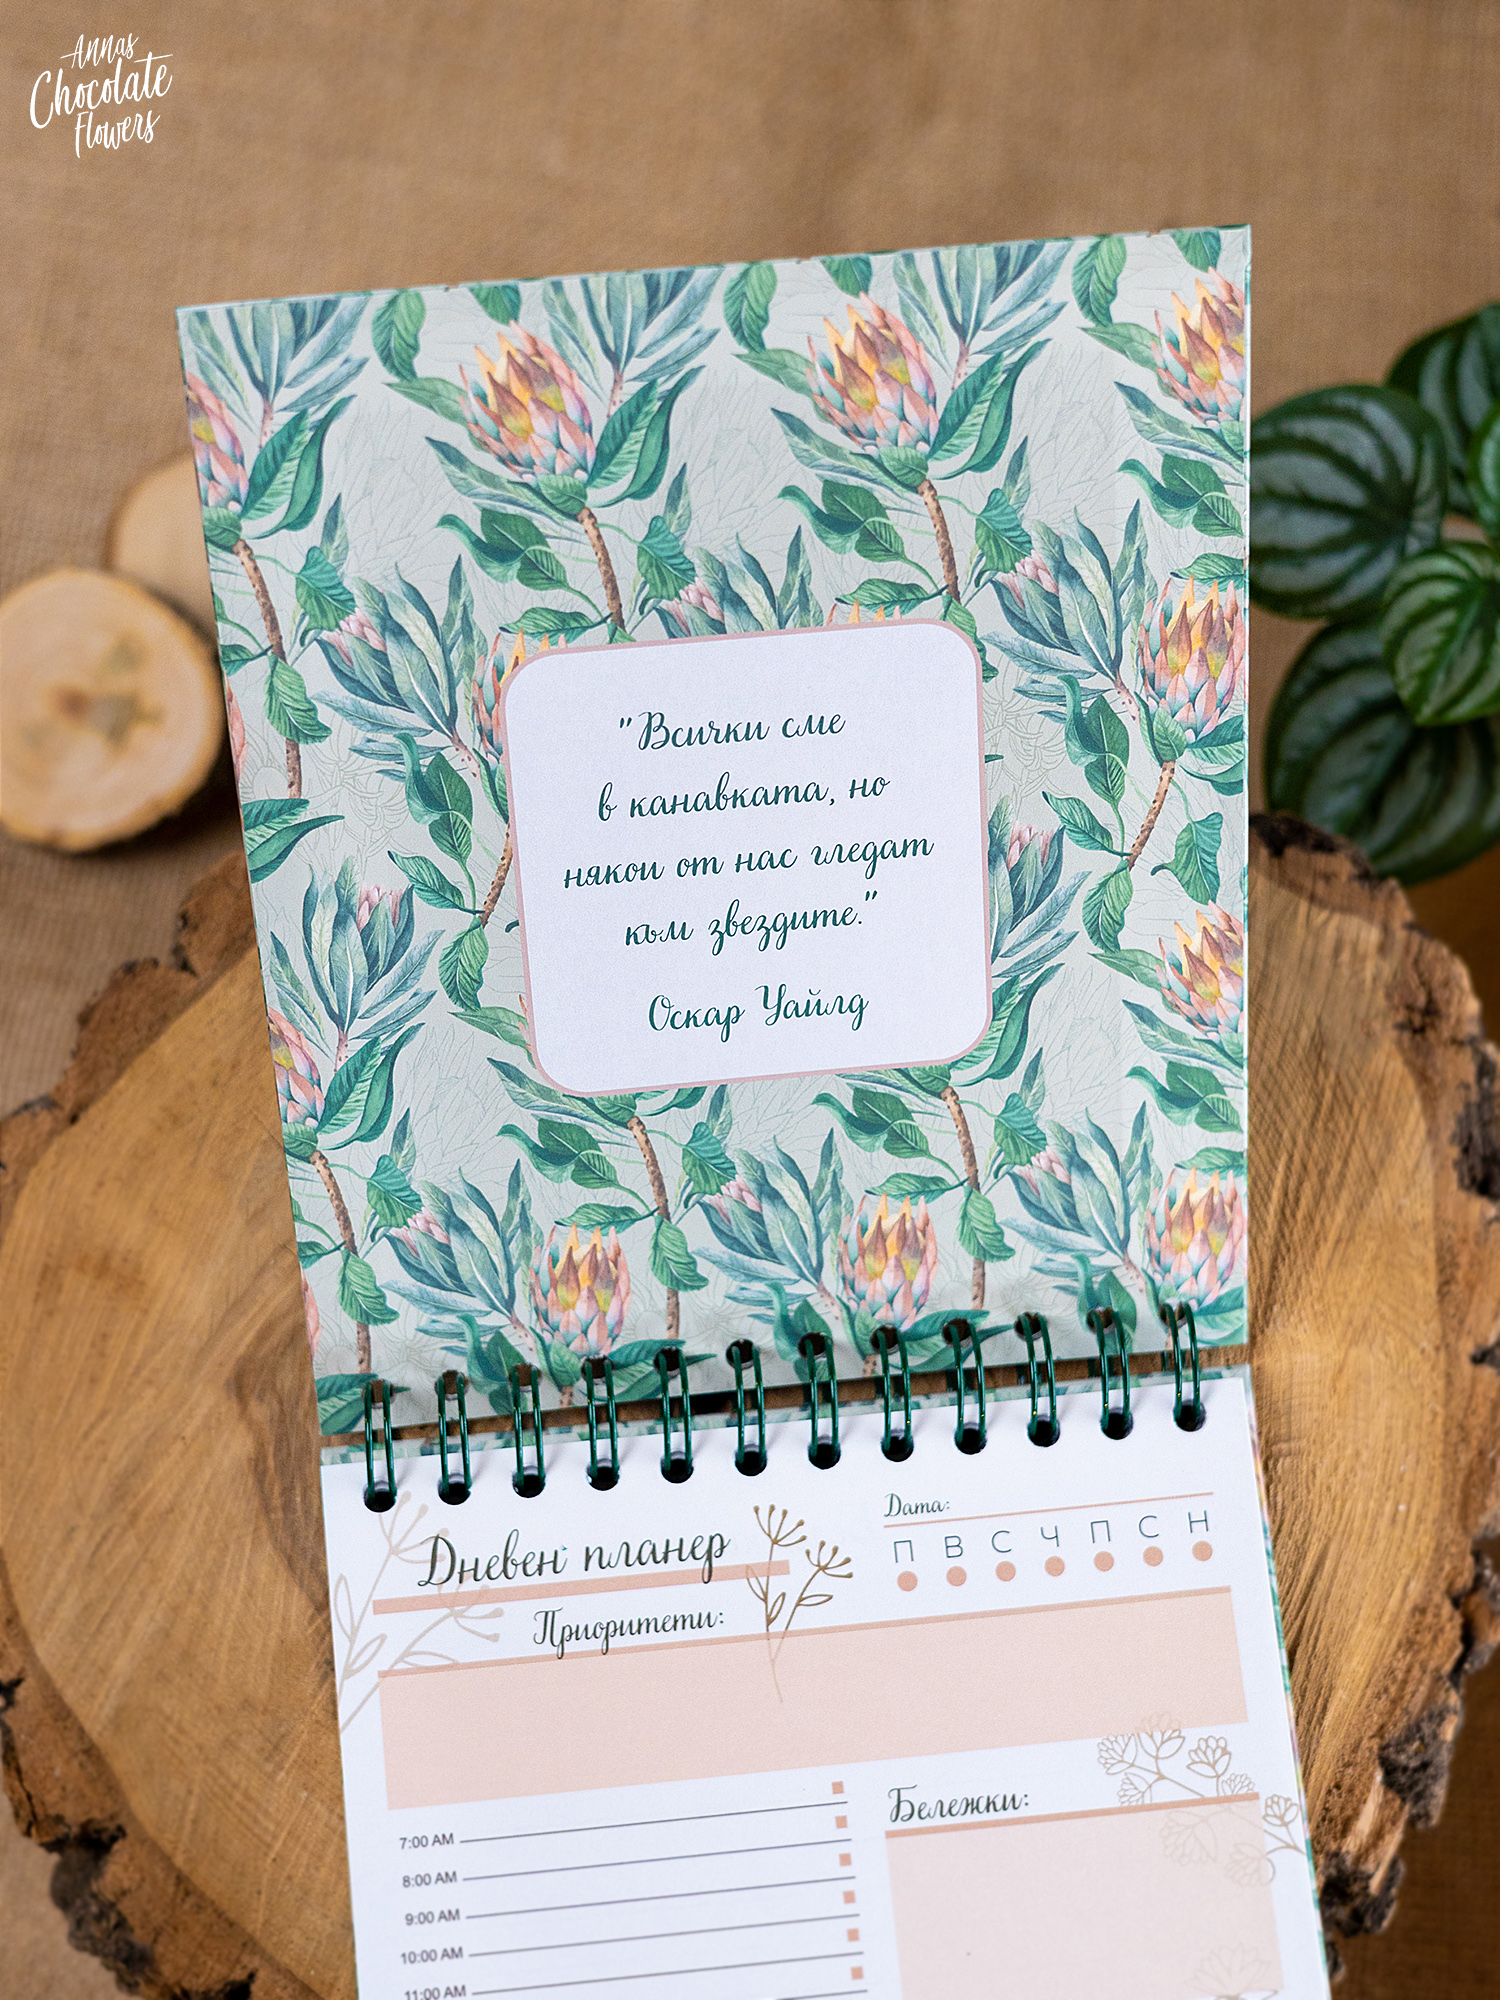 Annas
Chocolate
Flowers
"Всички сме
в канавката, но
някои от нас гледат
към звездите."
Оскар Уайлд
Дневен планер
Дата:
П В С Ч П С Н
Приоритети:
Бележки:
7:00 AM
8:00 AM
9:00 AM
10:00 AM
11:00 AM